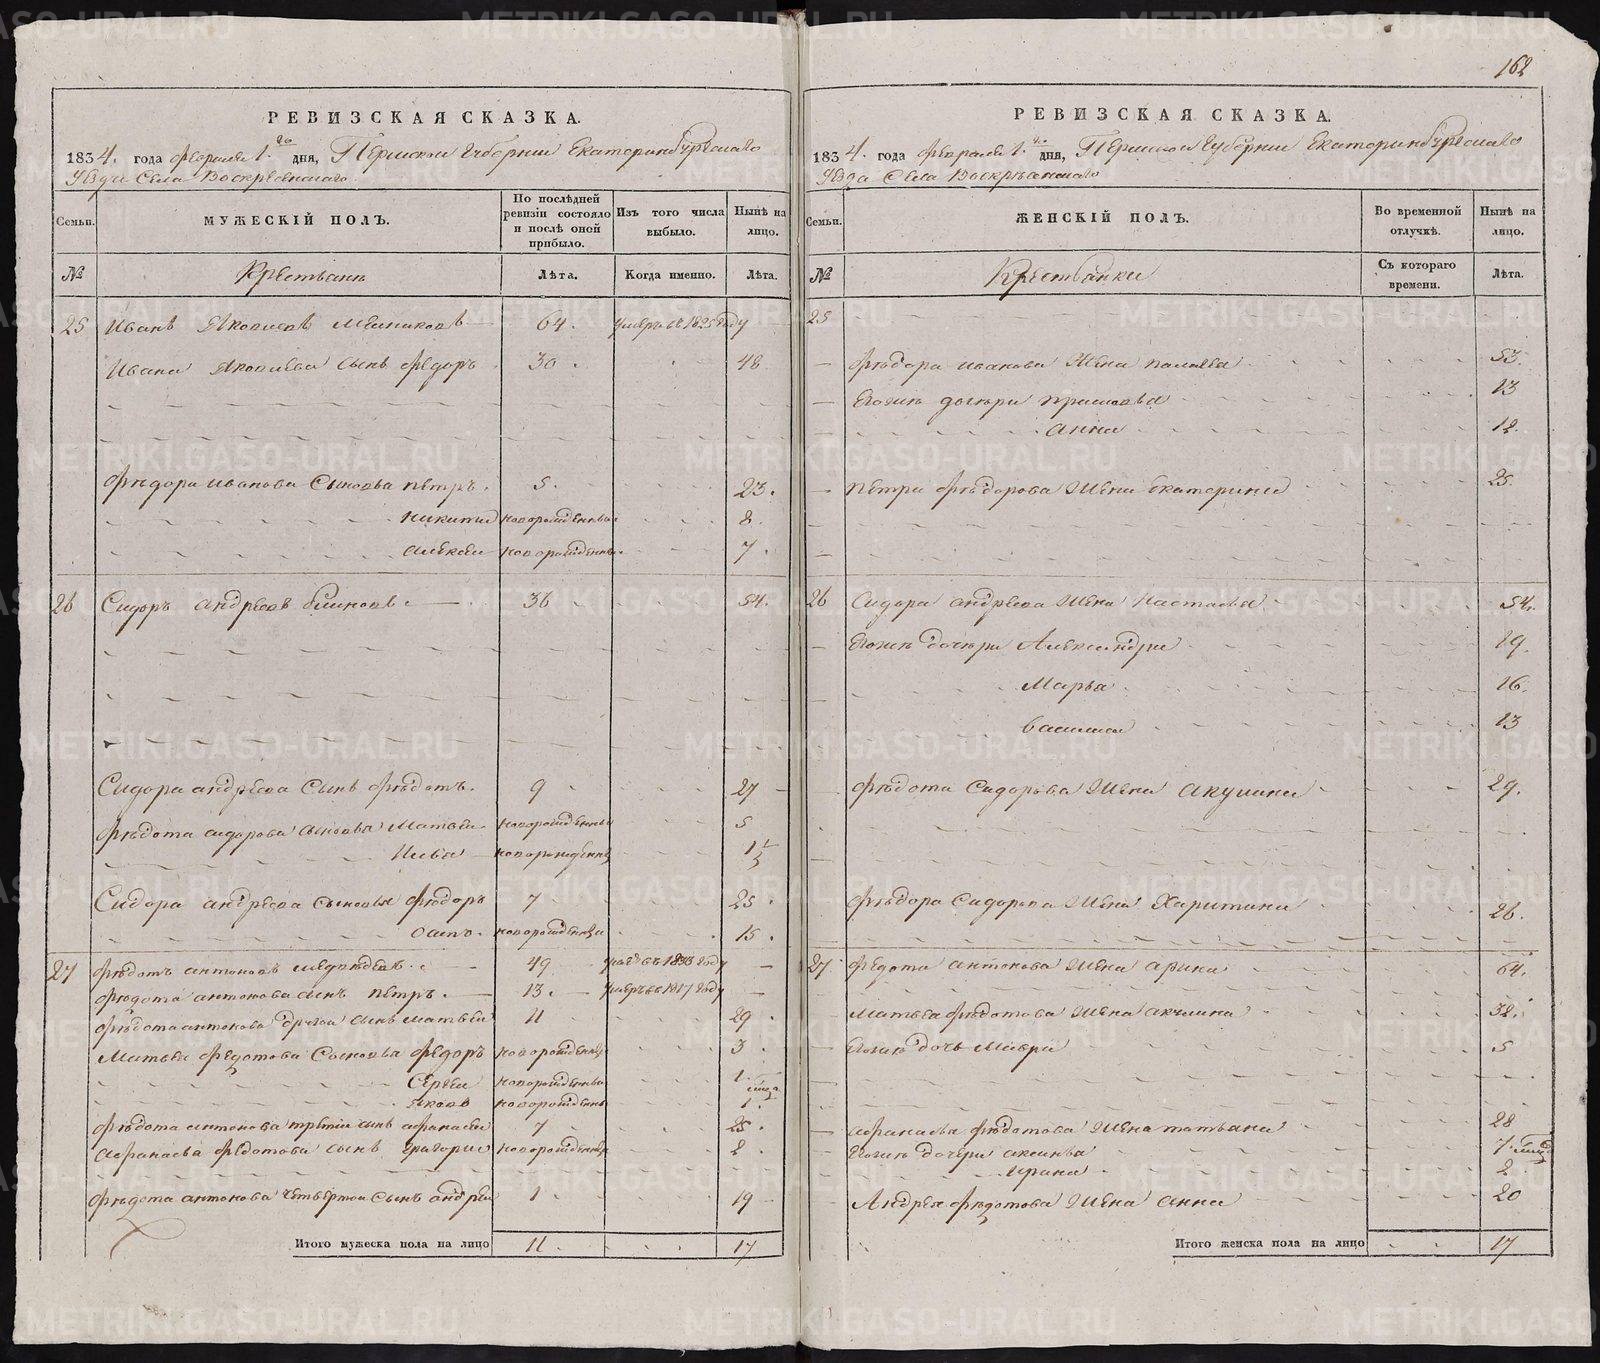 162
РЕВИЗСКАЯ СКАЗКА.
1834. года февраля 1.го дня, Пермской Губернии Екатеринбургскаго
Уезда Села Воскресенскаго
Семьи.
МУЖЕСКІЙ ПОЛЪ.
По послѣдней ревизіи состояло и послѣ оной прибыло.
Изъ того числа выбыло.
Нынѣ на лицо.
№
Крестьянъ
Лѣта.
Когда именно.
Лѣта.
25 Иванъ Яковлевъ 64. умеръ въ 1825 году
Ивана Яковлева сынъ Федоръ 30. 48
Фѣдора Иванова Сыновья Пѣтръ. 5. 23.
Никита новорожденный 8.
Алексеи новорожденны. 7.
26 Сидоръ Андреевъ 36 54.
Сидора Андреева Сынъ Фѣдотъ. 9 27
Фѣдота Сидорова Сыновья Матвеи. новорожденны 5
новорожденны 1 1/2
Сидора Андреева Сыновья Фѣдоръ 7 25.
Осипъ. новорожденны 15.
27 Фѣдотъ Антоновъ 49 умеръ въ 1833 году
Фѣдота Антонова сынъ Пѣтръ. 13. умеръ въ 1817 году
Фѣдота Антонова другой сынъ Матвеи 11 29.
Матвея Федотова Сыновья Федоръ новорожденны 3.
Сергеи новорожденны 1.
Яковъ новорожденны 1.
Фѣдота Антонова третiи сынъ Афанасеи 7 25.
Афанасья Федотова сынъ Григореи новорожденны 2.
Фѣдота Антонова четвертои Сынъ Андреи 1 19
Итого мужеска пола на лицо 11. 17
РЕВИЗСКАЯ СКАЗКА.
1834. года февраля 1.го дня, Пермской Губернии Екатеринбургскаго
Уезда Села Воскресенскаго
Семьи.
ЖЕНСКІЙ ПОЛЪ.
Во временной отлучкѣ.
Нынѣ на лицо.
№
Крестьянки
Съ котораго времени.
Лѣта.
25
Фѣдора Иванова Жена 53.
Еюжъ дочери Прасковья 13
Анна 12.
Пѣтра Фѣдорова Жена Екатерина 25.
26 Сидора Андреева Жена Настасья 54.
Еюжъ дочери Александра 19.
Марья. 16.
13
Фѣдота Сидорова Жена Акулина 29.
Фѣдора Сидорова Жена Харитина 26.
27 Федота Антонова Жена Арина 64.
Матвея Фѣдотова Жена Акулина 32.
Еюжъ дочь Мавра 5
Афанасья Фѣдотова Жена Татьяна 28
Еюжъ дочери Аксинья 7.
Ирина 2.
Андрея Фѣдотова Жена Анна 20
Итого женска пола на лицо 17
METRIKI.GASO-URAL.RU